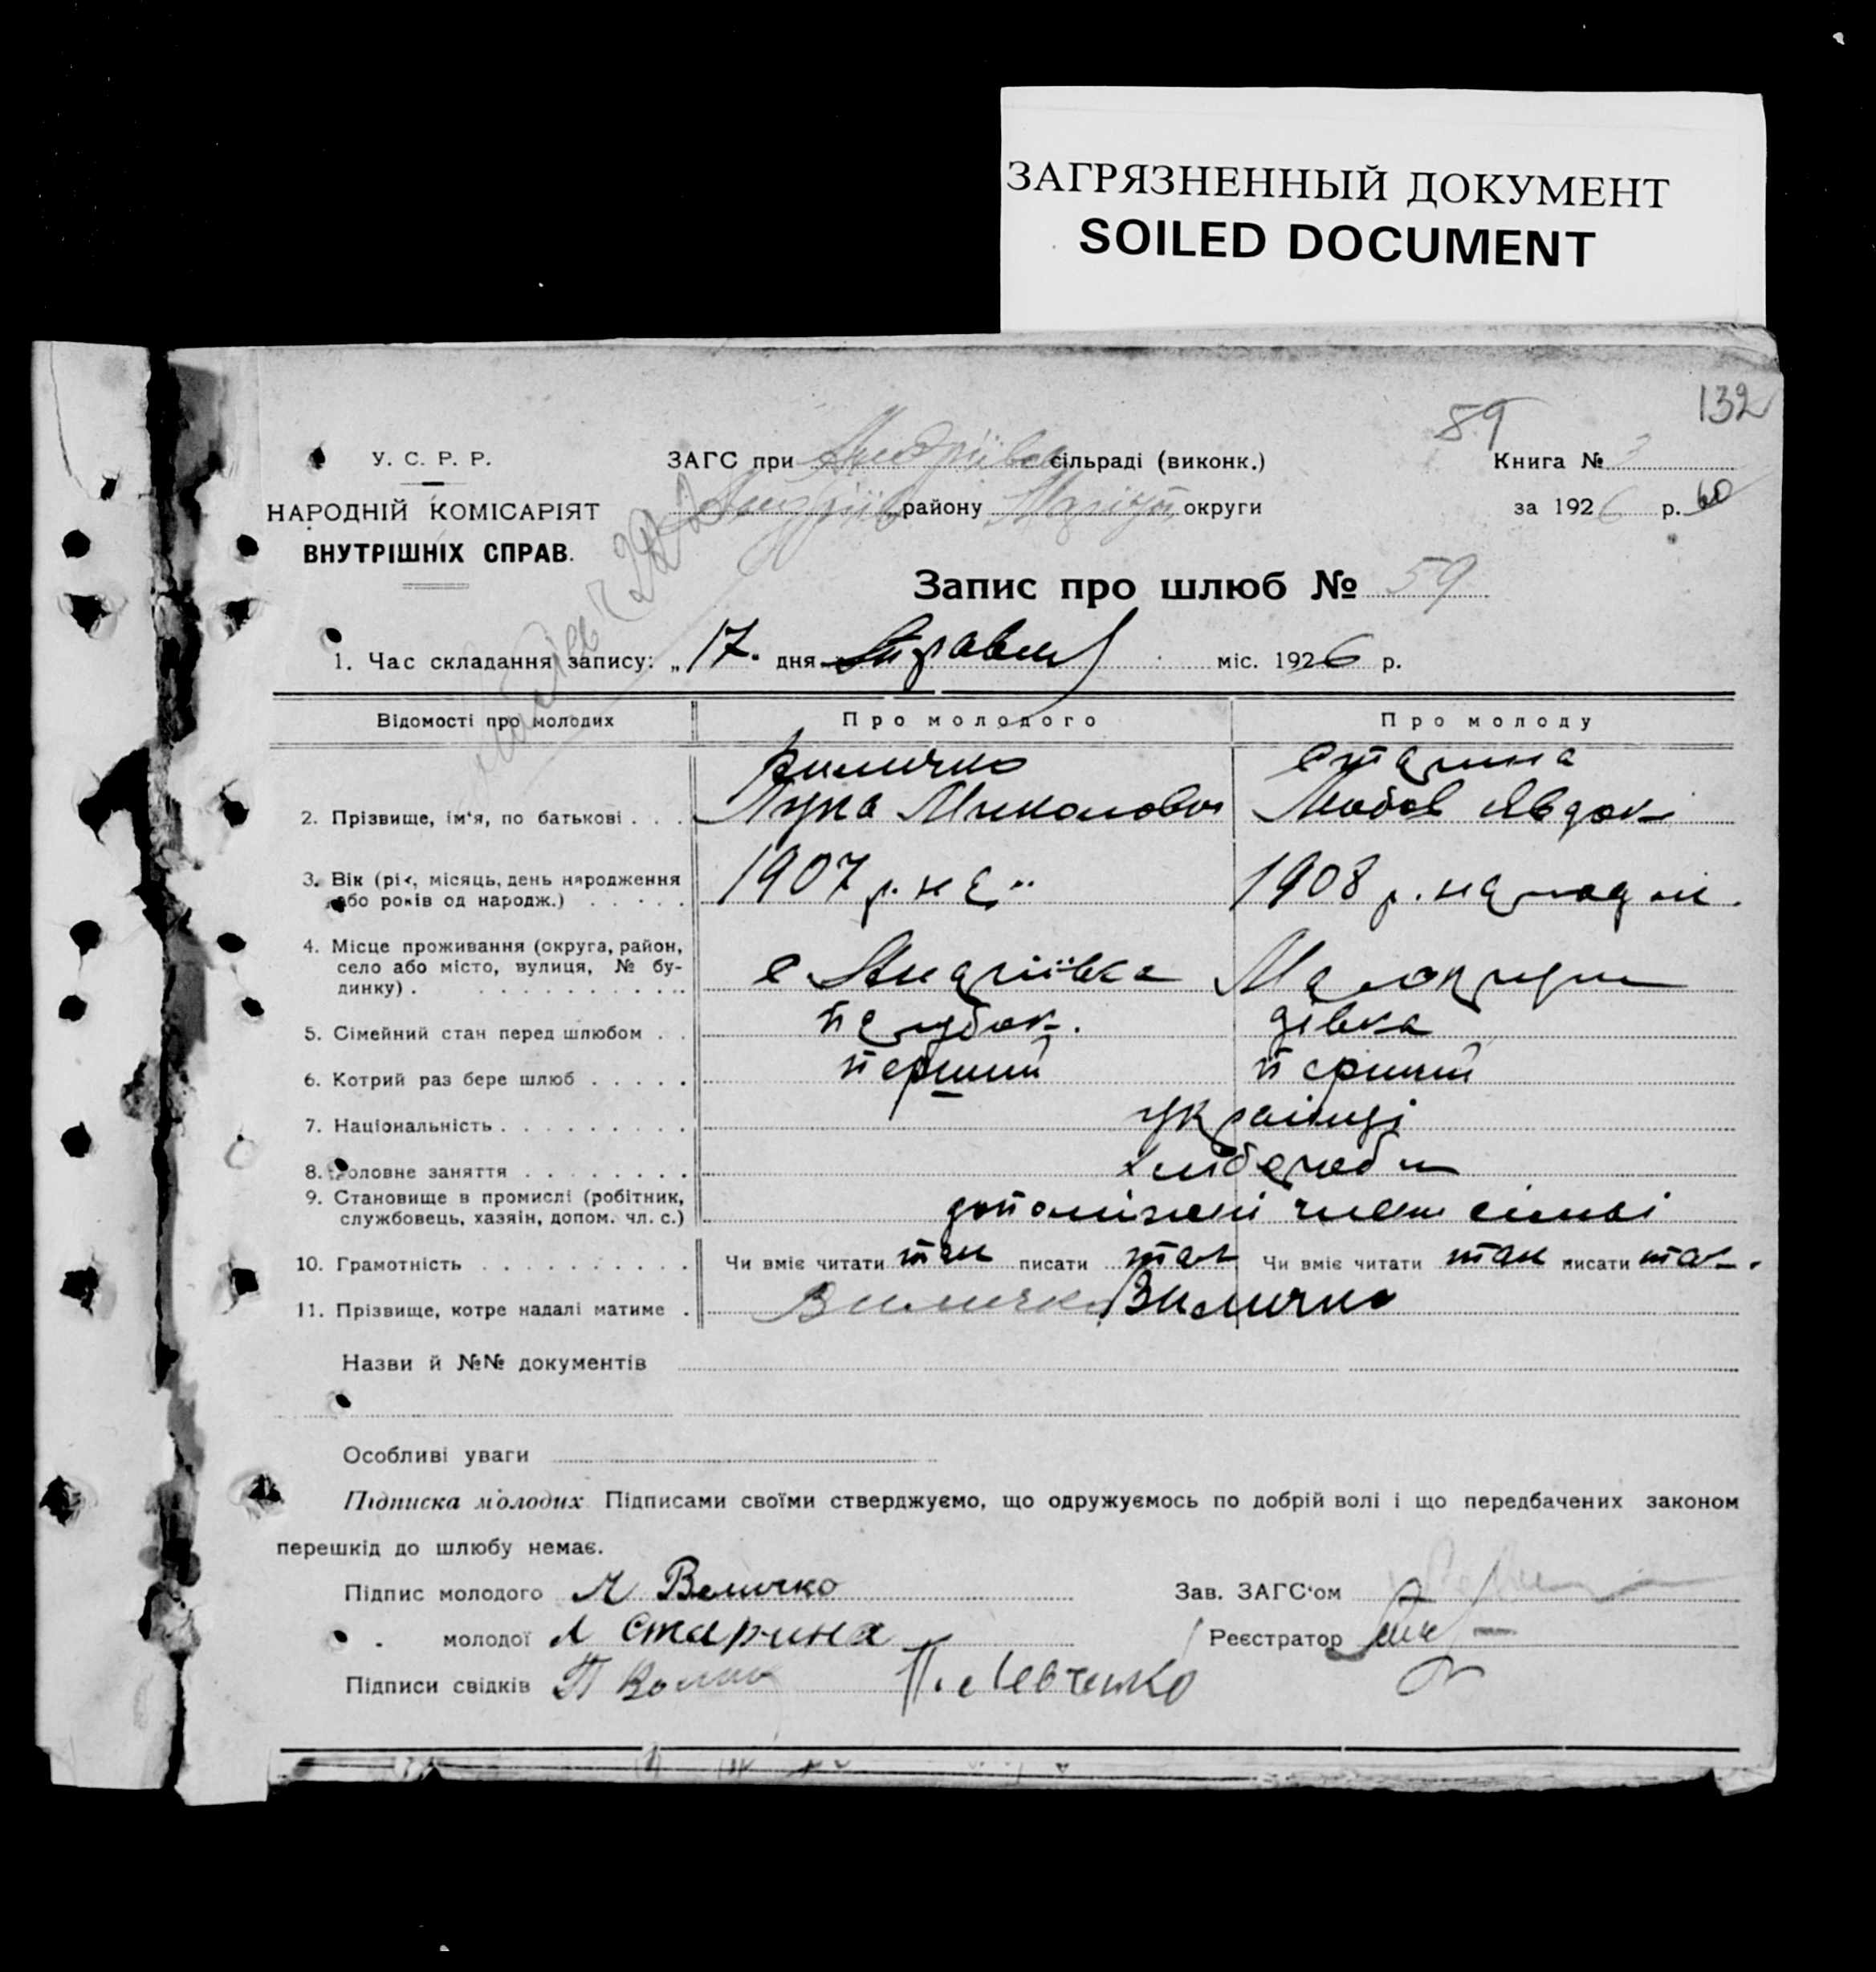 ЗАГРЯЗНЕННЫЙ ДОКУМЕНТ
SOILED DOCUMENT
132
89
У. С. Р. Р.
НАРОДНІЙ КОМІСАРІЯТ
ВНУТРІШНІХ СПРАВ.
ЗАГС при Андріївській сільраді (виконк.)
Андріїв району Маріуп округи
Книга № 3
за 1926 р. 60
Запис про шлюб № 59
1. Час складання запису: „17" дня Травня міс. 1926 р.
Відомості про молодих Про молодого Про молоду
Величко Старина
2. Прізвище, ім'я, по батькові . . . Лука Миколович Любов Явдок
3. Вік (рік, місяць, день народження 1907 р. на 1908 р. народжен.
або років од народж.) . . . . .
4. Місце проживання (округа, район,
село або місто, вулиця, № бу- с Андріївка
динку) . . . . . . . . . . .
5. Сімейний стан перед шлюбом . . парубок. дівка
6. Котрий раз бере шлюб . . . . . перший перший
7. Національність . . . . . . . . . українці
8. Головне заняття . . . . . . . . хлібороби
9. Становище в промислі (робітник,
службовець, хазяїн, допом. чл. с.) допоміжні члени сімьі
10. Грамотність . . . . . . . . . . Чи вміє читати так писати так Чи вміє читати так писати так.
11. Прізвище, котре надалі матиме . Величко Величко
Назви й №№ документів
Особливі уваги
Підписка молодих Підписами своїми стверджуємо, що одружуємось по добрій волі і що передбачених законом
перешкід до шлюбу немає.
Підпис молодого Л Величко Зав. ЗАГС'ом
молодої Л Старина Реєстратор
Підписи свідків П Левченко